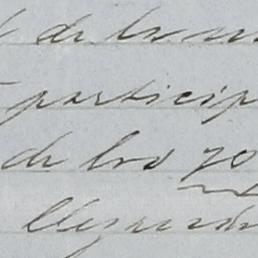 de la
particip
de los 70
llegando